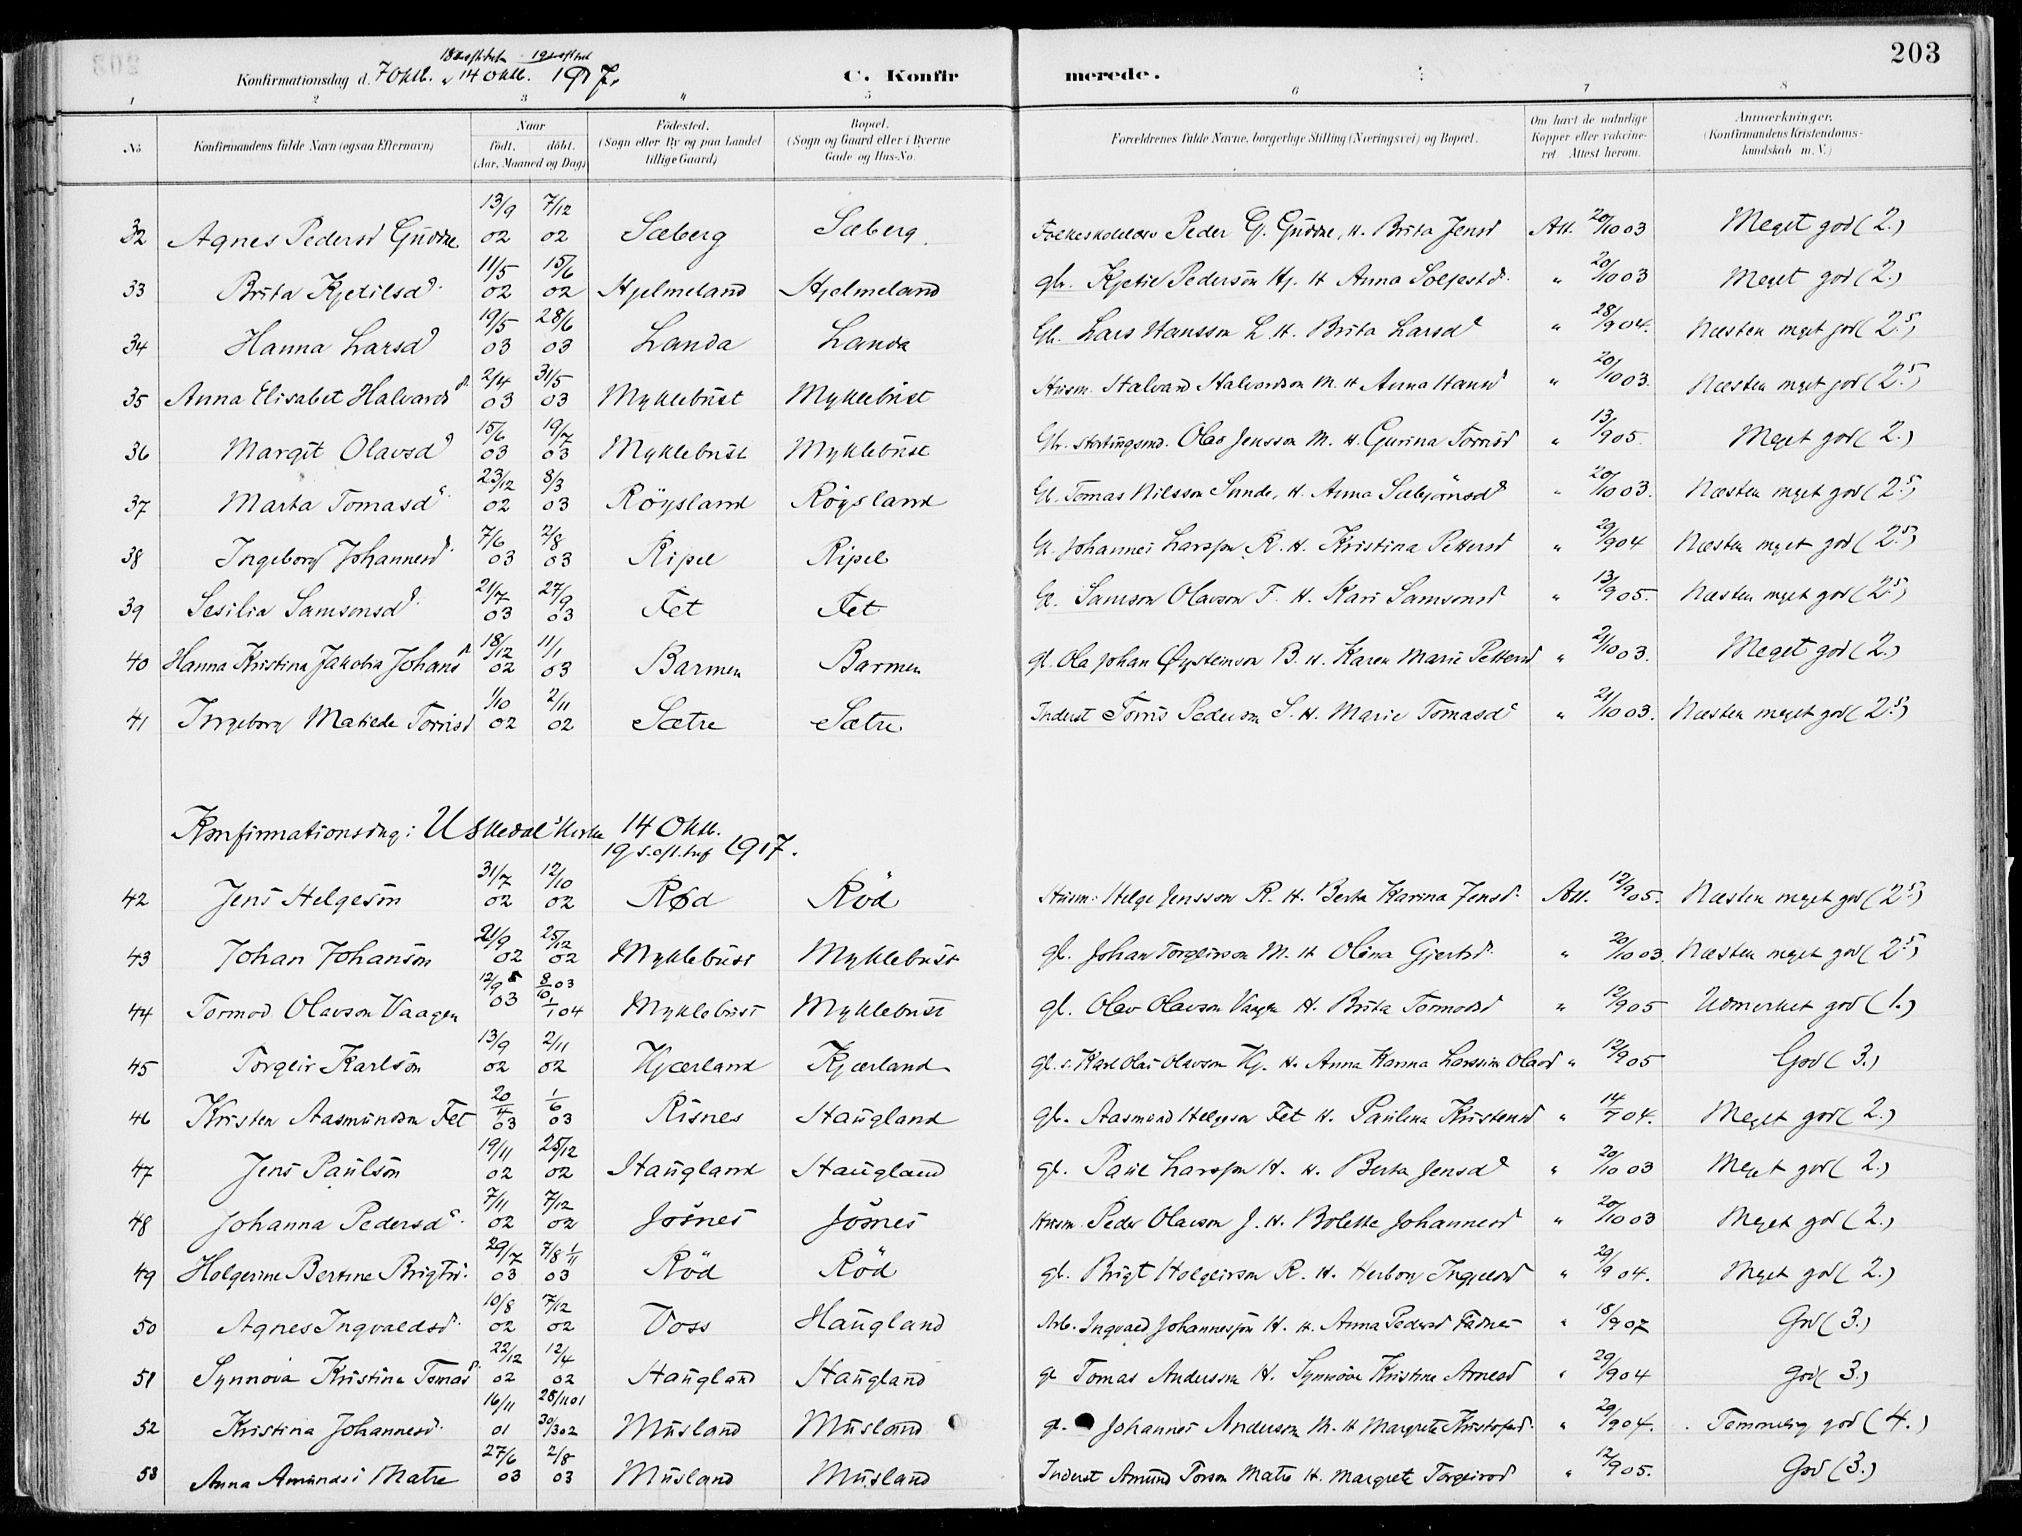 203
18 s.eft.tref. 19 s.eft.tref.
Konfirmationsdag d. 7 Oktb. " 14 Oktb. 1917. C. Konfirmerede.
1 2 3 4 5 6 7 8
No. Konfirmandens fulde Navn (ogsaa Efternavn) Naar født. døbt. (Aar, Maaned og Dag) Fødested. (Sogn eller By og paa Landet tillige Gaard) Bopæl. (Sogn og Gaard eller i Byerne Gade og Hus-No. Forældrenes fulde Navne, borgerlige Stilling (Næringsvei) og Bopæl. Om havt de naturlige Kopper eller vaccineret Attest herom. Anmærkninger. (Konfirmandens Kristendomskundskab m. V.)
32 Agnes Pedersd Guddal 13/9 02 7/12 02 Sæberg Sæberg Peder G. Guddal, H. Brita Jensd Att. 20/10 03 Meget god (2.)
33 Brita Kjetilsd. 11/5 02 15/6 02 Hjelmeland Hjelmeland gb. Kjetil Pederson Hj. H. Anna Solfestd. " 20/10 03 Meget god (2.)
34 Hanna Larsd 19/5 03 28/6 03 Landa Landa Gb. Lars Hansson L. H. Brita Larsd " 28/9 04. Næsten meget god (2.5)
35 Anna Elisabet Halvardsd. 2/4 03 31/5 03 Myklebust Myklebust Husm. Halvard Halvardson M. H. Anna Hansd " 20/10 03. Næsten meget god (2.5)
36 Margit Olavsd 15/6 03 19/7 03 Myklebust Myklebust Gb. Stortingsmd. Olav Jensson M. H. Gurina Torrisd " 13/9 05. Meget god (2.)
37 Marta Tomasd. 23/12 02 8/3 03 Röysland Röysland Gb. Tomas Nilsson Sunde, H. Anna Sæbjörnsd " 20/10 03. Næsten meget god (2.5)
38 Ingeborg Johannesd. 7/6 03 2/8 03 Ripel Ripel G. Johannes Larsson R. H. Kristina Pettersd " 29/9 04 Næsten meget god (2.5)
39 Sesilia Samsonsd. 21/7 03 27/9 03 Fet Fet G. Samson Olavson F. H. Kari Samsonsd " 13/9 05. Næsten meget god (2.5)
40 Hanna Kristina Jakobia Johansd 18/12 02 11/1 03 Barmen Barmen gb. Ola Johan Øysteinson B. H. Karen Marie Pettersd " 21/10 03. Meget god (2.)
41 Ingeborg Matilde Torrisd 1/10 02 2/11 02 Sætre Sætre Inderst Torris Pederson S. H. Marie Tomasd " 21/10 03. Næsten meget god (2.5)
Konfirmationsdag i Uskedal Kirke 14 Oktb.
19 s.eft.tref 1917.
42 Jens Helgeson 31/7 02 12/10 02 Rød Röd Husm. Helge Jensson R. H. Berta Karina Jensd. Att. 12/9 05. Næsten meget god (2.5)
43 Johan Johanson 21/9 02 25/12 02 Myklebust Myklebust gb. Johan Torgeirson M. H. Olina Gjertsd. " 20/10 03. Næsten meget god (2.5)
44 Tormod Olavson Vaagen 12/9 03 8/10 03 1/1 04 Myklebust Myklebust gb. Olav Olavson Vaagen H. Brita Tormodsd " 12/9 05 Udmerket god (1.)
45 Torgeir Karlson 13/9 02 2/11 02 Kjærland Kjærland gb. s. Karl Olai Olavson Kj. H. Anna Karina Larssine Olavsd " 12/9 05 God (3.)
46 Kristen Aasmundson Fet 20/4 03 1/6 03 Risnes Haugland gb. Aasmund Helgeson Fet H. Paulina Kristensd " 14/7 04. Meget god (2.)
47 Jens Paulson 19/11 02 25/12 02 Haugland Haugland gb. Paul Larsson H. H. Berta Jensd " 20/10 03 Meget god (2.)
48 Johanna Pedersd. 7/11 02 7/12 02 Jösnes Jösnes Husm. Peder Olavson J. H. Bolette Johannesd " 20/10 03 Meget god (2.)
49 Holgerine Bertine Brigtsd. 29/7 03 7/8 1/11 03 Röd Röd gb. Brigt Holgeirson R. H. Herborg Ingjelsd " 29/9 04. Meget god (2.)
50 Agnes Ingvaldsd. 10/8 02 7/12 02 Voss Haugland Arb. Ingvald Johannesson H. H. Anna Pedersd Fadnes " 18/9 07 God (3.)
51 Synnöva Kristine Tomasd. 22/12 02 12/4 02 Haugland Haugland g. Tomas Andersson H. Synnöva Kristine Arnesd " 29/9 04 God (3.)
52 Kristina Johannesd. 16/11 01 28/11 01 30/3 02 Musland Musland g. Johannes Anderson M. H Margreta Kristofersd. " 29/9 04. Temmelig god (4.)
53 Anna Amundsd Matre 27/6 03 2/8 03 Musland Musland Inderst Amund Torson Matre H. Margrete Torgeirsd " 12/9 05. God (3.)